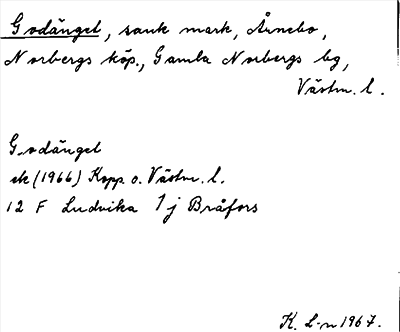 Godänget, sank mark, Årnebo,
Norbergs köp., Gamla Norbergs bg,
Västm. l.
Godänget
ek (1966) Kopp. o. Västm. l.
12 F Ludvika 1 j Bråfors
K. L-n 1967.